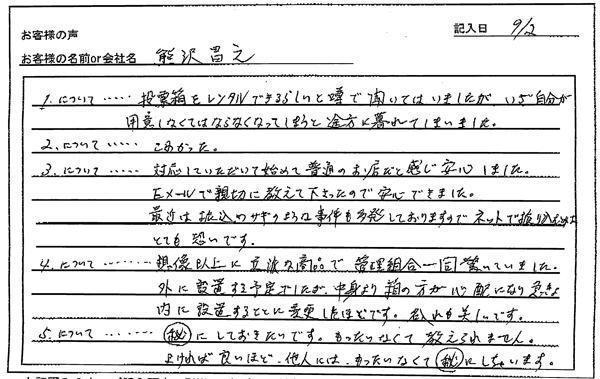 お客様の声
記入日 9/2
お客様の名前or会社名 熊沢昌之
1.について・・・・・ 投票箱をレンタルできるらしいと噂で聞いてはいましたが、いざ自分が
用意しなくてはならなくなってしまうと途方に暮れてしまいました。
2.について・・・・・ こわかった。
3.について・・・・・ 対応していただいて始めて普通のお店だと感じ安心しました。
Eメールで親切に教えて下さったので安心できました。
最近は振込のサギのような事件も多発しておりますのでネットで振り込むのは
とても恐いです。
4.について・・・・・・・ 想像以上に立派な商品で管理組合一同驚いていました。
外に設置する予定でしたが、中身より箱の方が心配になり急きょ
内に設置することに変更したほどです。 も美しいです。
5.について・・・・・・・ 秘にしておきたいです。もったいなくて教えられません。
よければ良いほど、他人には、もったいなくて秘にしちゃいます。